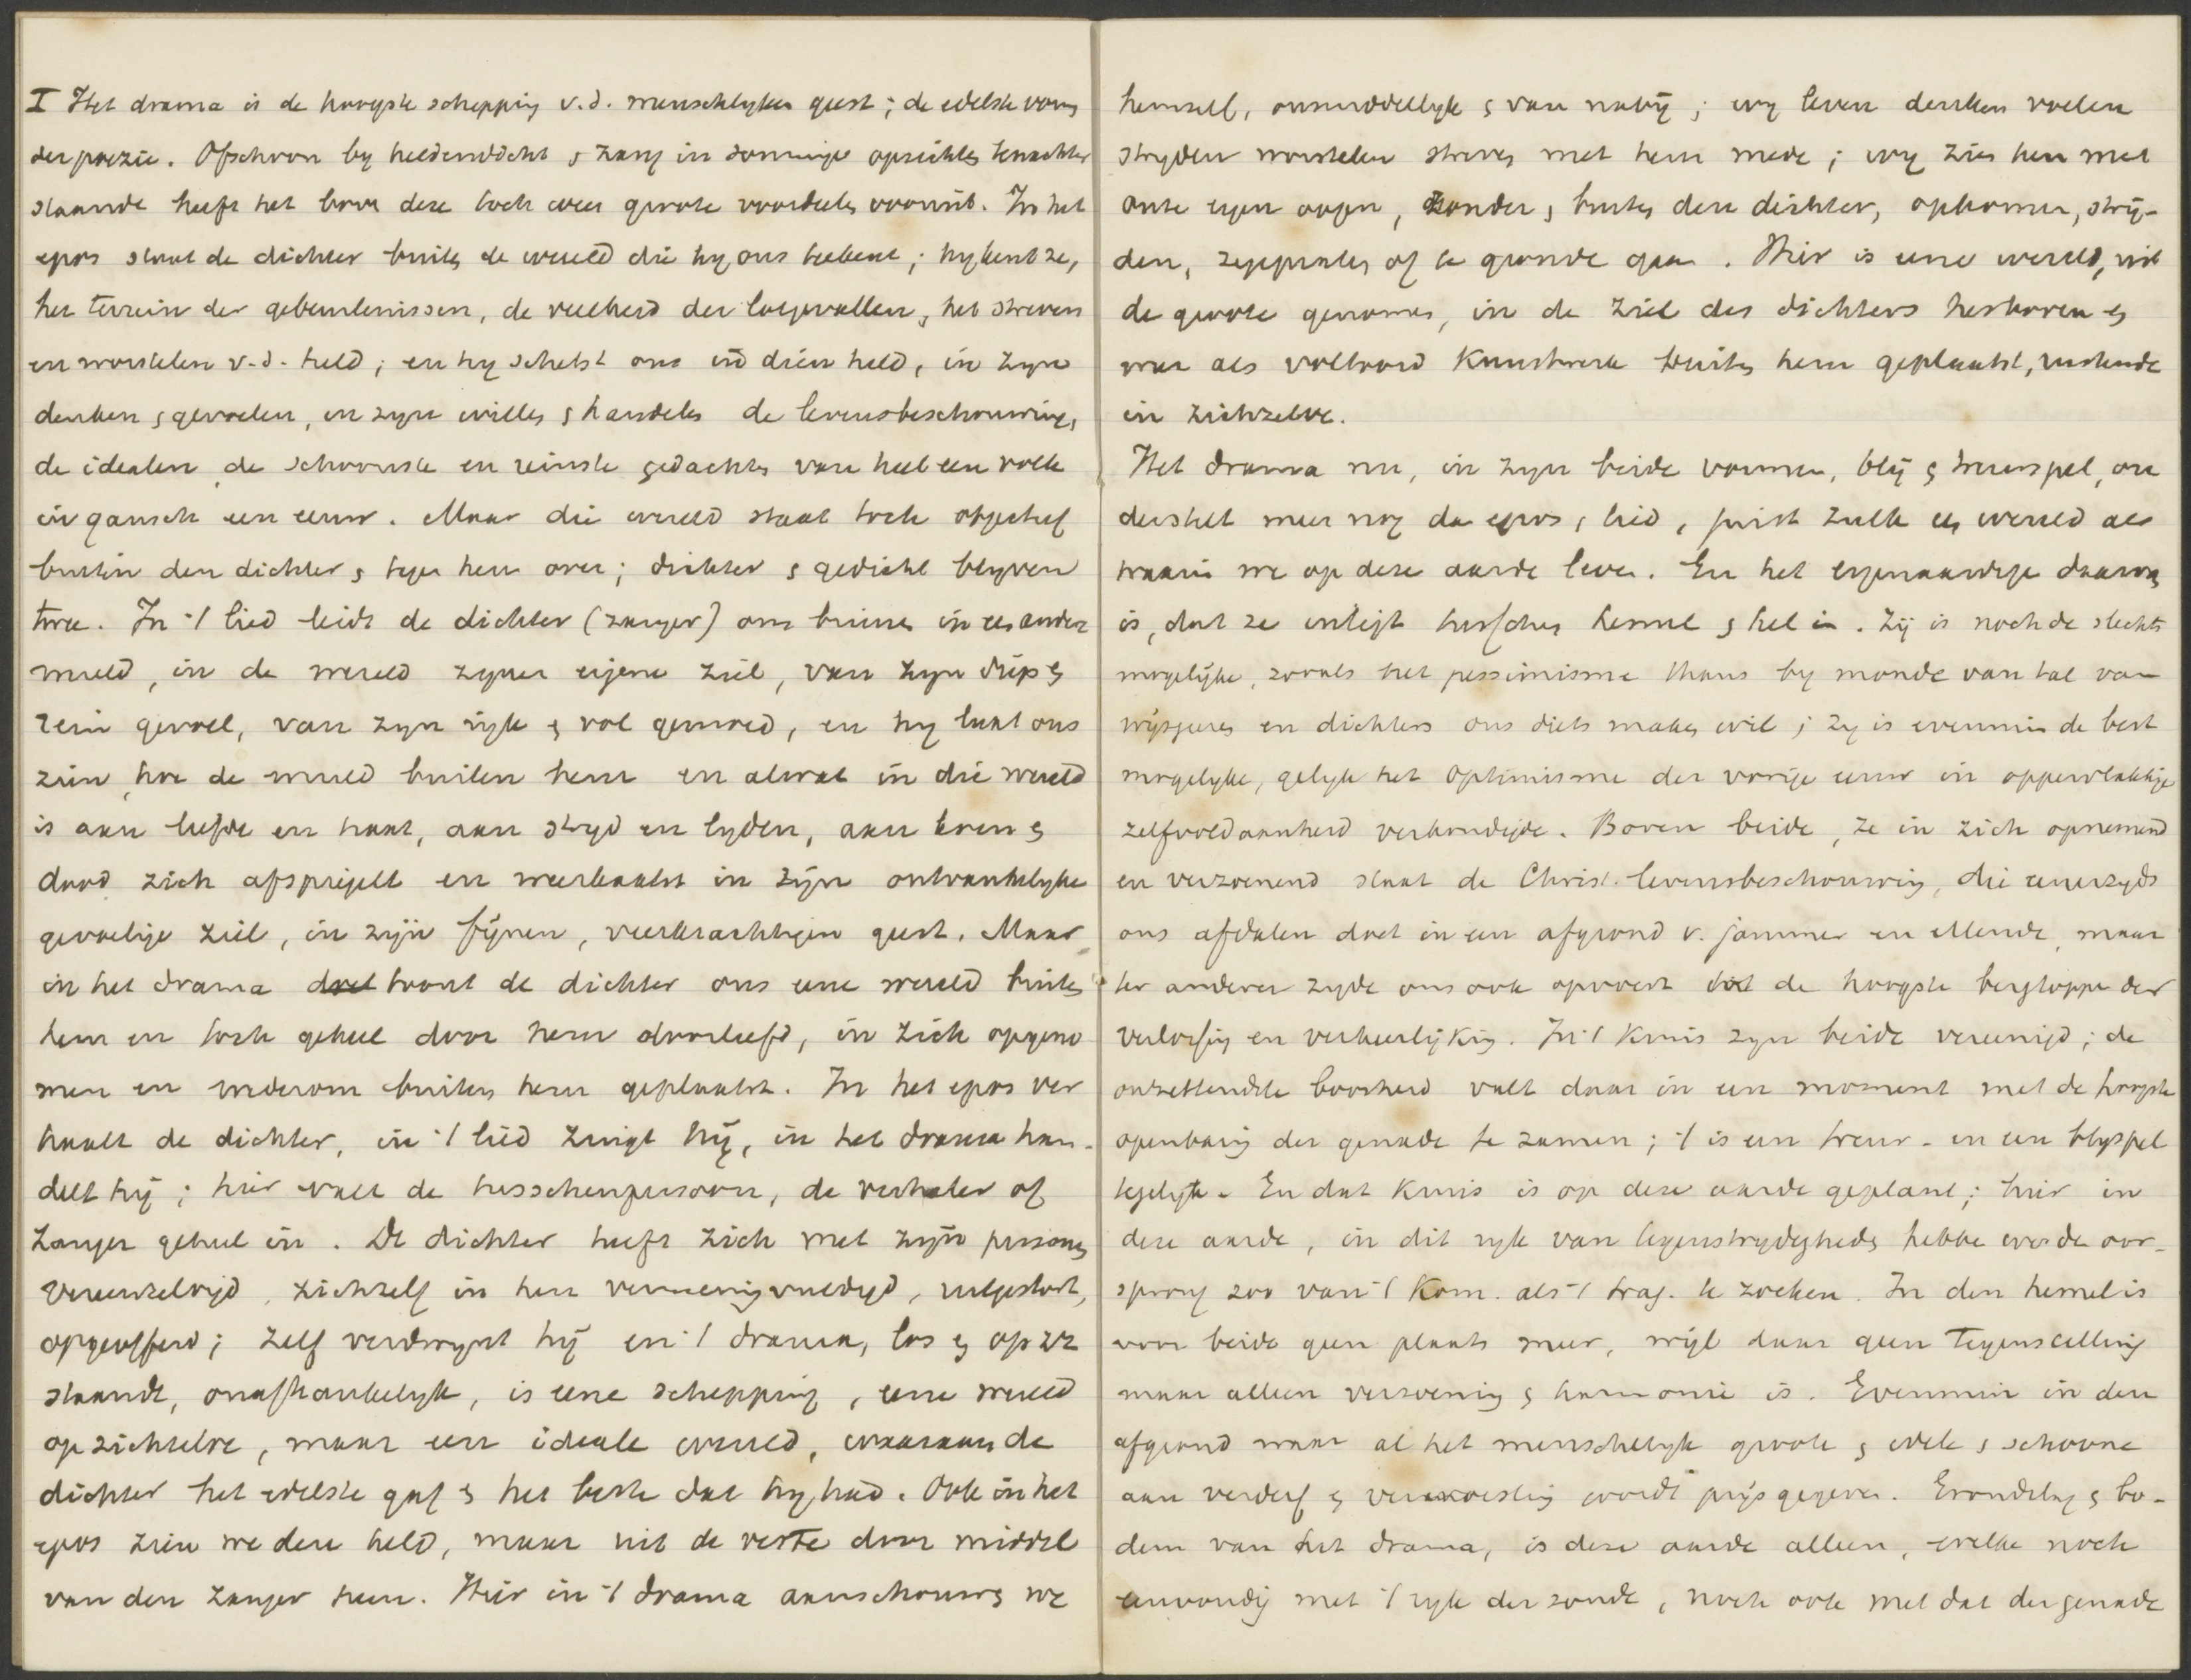 I Het drama is de hoogste schepping v.d. menschlyken geest; de edelste vorm
der poëzie. Ofschoon by heldendicht & zang in sommige opzichten tenachter
staande heeft het boven deze toch weer groote voordeelen vooruit. In het
epos staat de dichter buiten de wereld die hy ons teekent; hy kent ze,
het terrein der gebeurtenissen, de veelheid der lotgevallen, het streven
en worstelen v.d. held; en hy schetst ons in dien held, in zyn
denken & gevoelen, in zyn willen & handelen de levensbeschouwing,
de idealen, de schoonste en reinste gedachten van heel een volk
in gansch een eeuw. Maar die wereld staat toch objectief
buiten den dichter & tegen hem over; dichter & gedicht blyven
twee. In 't lied leidt de dichter (zanger) ons binnen in een andere
wereld, in de wereld zyner eigene ziel, van zyn diep &
rein gevoel, van zyn ryk & vol gemoed, en hy laat ons
zien, hoe de wereld buiten hem en alwat in die wereld
is aan liefde en haat, aan stryd en lyden, aan leven &
dood zich afspiegelt en weerkaatst in zijn ontvankelyke
gevoelige ziel, in zijn fijnen, veerkrachtigen geest. Maar
in het drama doet toont de dichter ons eene wereld buiten
hem en toch geheel door hem doorleefd, in zich opgeno
men en wederom buiten hem geplaatst. In het epos ver
haalt de dichter, in 't lied zingt hij, in het drama han-
delt hij; hier valt de tusschenpersoon, de verhaler of
zanger geheel in. De dichter heeft zich met zijn personen
vereenzelvigd, zichzelf in hen vermenigvuldigd, uitgestort,
opgeofferd; zelf verdwynt hij en 't drama, los & op zz
staande, onafhankelyk, is eene schepping, eene wereld
op zichzelve, maar een ideale wereld, waaraan de
dichter het edelste gaf & het beste dat hy had. Ook in het
epos zien we den held, maar uit de verte door middel
van den zanger heen. Hier in 't drama aanschouwen we
hemzelf, onmiddellyk & van nabij; wy leven denken voelen
stryden worstelen streven met hem mede; wy zien hen met
onze eigen oogen, zonder & buiten den dichter, opkomen, strij-
den, zegepralen of te gronde gaan. Hier is eene wereld, uit
de groote genomen, in de ziel des dichters herboren &
weer als voltooid Kunstwerk buiten hem geplaatst, rustende
in zichzelve.
Het drama nu, in zyn beide vormen, blij & treurspel, on
derstelt meer nog dan epos & lied, juist zulk een wereld als
waarin we op deze aarde leven. En het eigenaardige daarvan
is, dat ze inligt tusschen hemel & hel in. Zij is noch de slechts
mogelijke, zooals het pessimisme thans by monde van tal van
wijsgeeren en dichters ons diets maken wil; zy is evenmin de best
mogelyke, gelyk het optimisme der vorige eeuw in oppervlakkige
zelfvoldaanheid verkondigde. Boven beide, ze in zich opnemend
en verzoenend staat de Christ. levensbeschouwing, die eenerzyds
ons afdalen doet in een afgrond v. jammer en ellende, maar
ter anderer zyde ons ook opvoert tot de hoogste bergtoppen der
verlossing en verheerlijking. In 't Kruis zyn beide vereenigd; de
ontzettendste boosheid valt daar in een moment met de hoogste
openbaring der genade te zamen; 't is een treur- en een blyspel
tegelyk. En dat Kruis is op deze aarde geplant; hier in
deze aarde, in dit ryk van tegenstrydigheden hebben we de oor-
sprong zoo van 't Kom. als 't trag. te zoeken. In den hemel is
voor beide geen plaats meer, wijl daar geen tegenstelling
maar alleen verzoening & harmonie is. Evenmin in den
afgrond waar al het menschelyk groote & edele & schoone
aan verderf & verwoesting wordt prijs gegeven. Grondslag & bo-
dem van het drama, is deze aarde alleen, welke noch
eenvoudig met 't ryk der zonde, noch ook met dat der genade